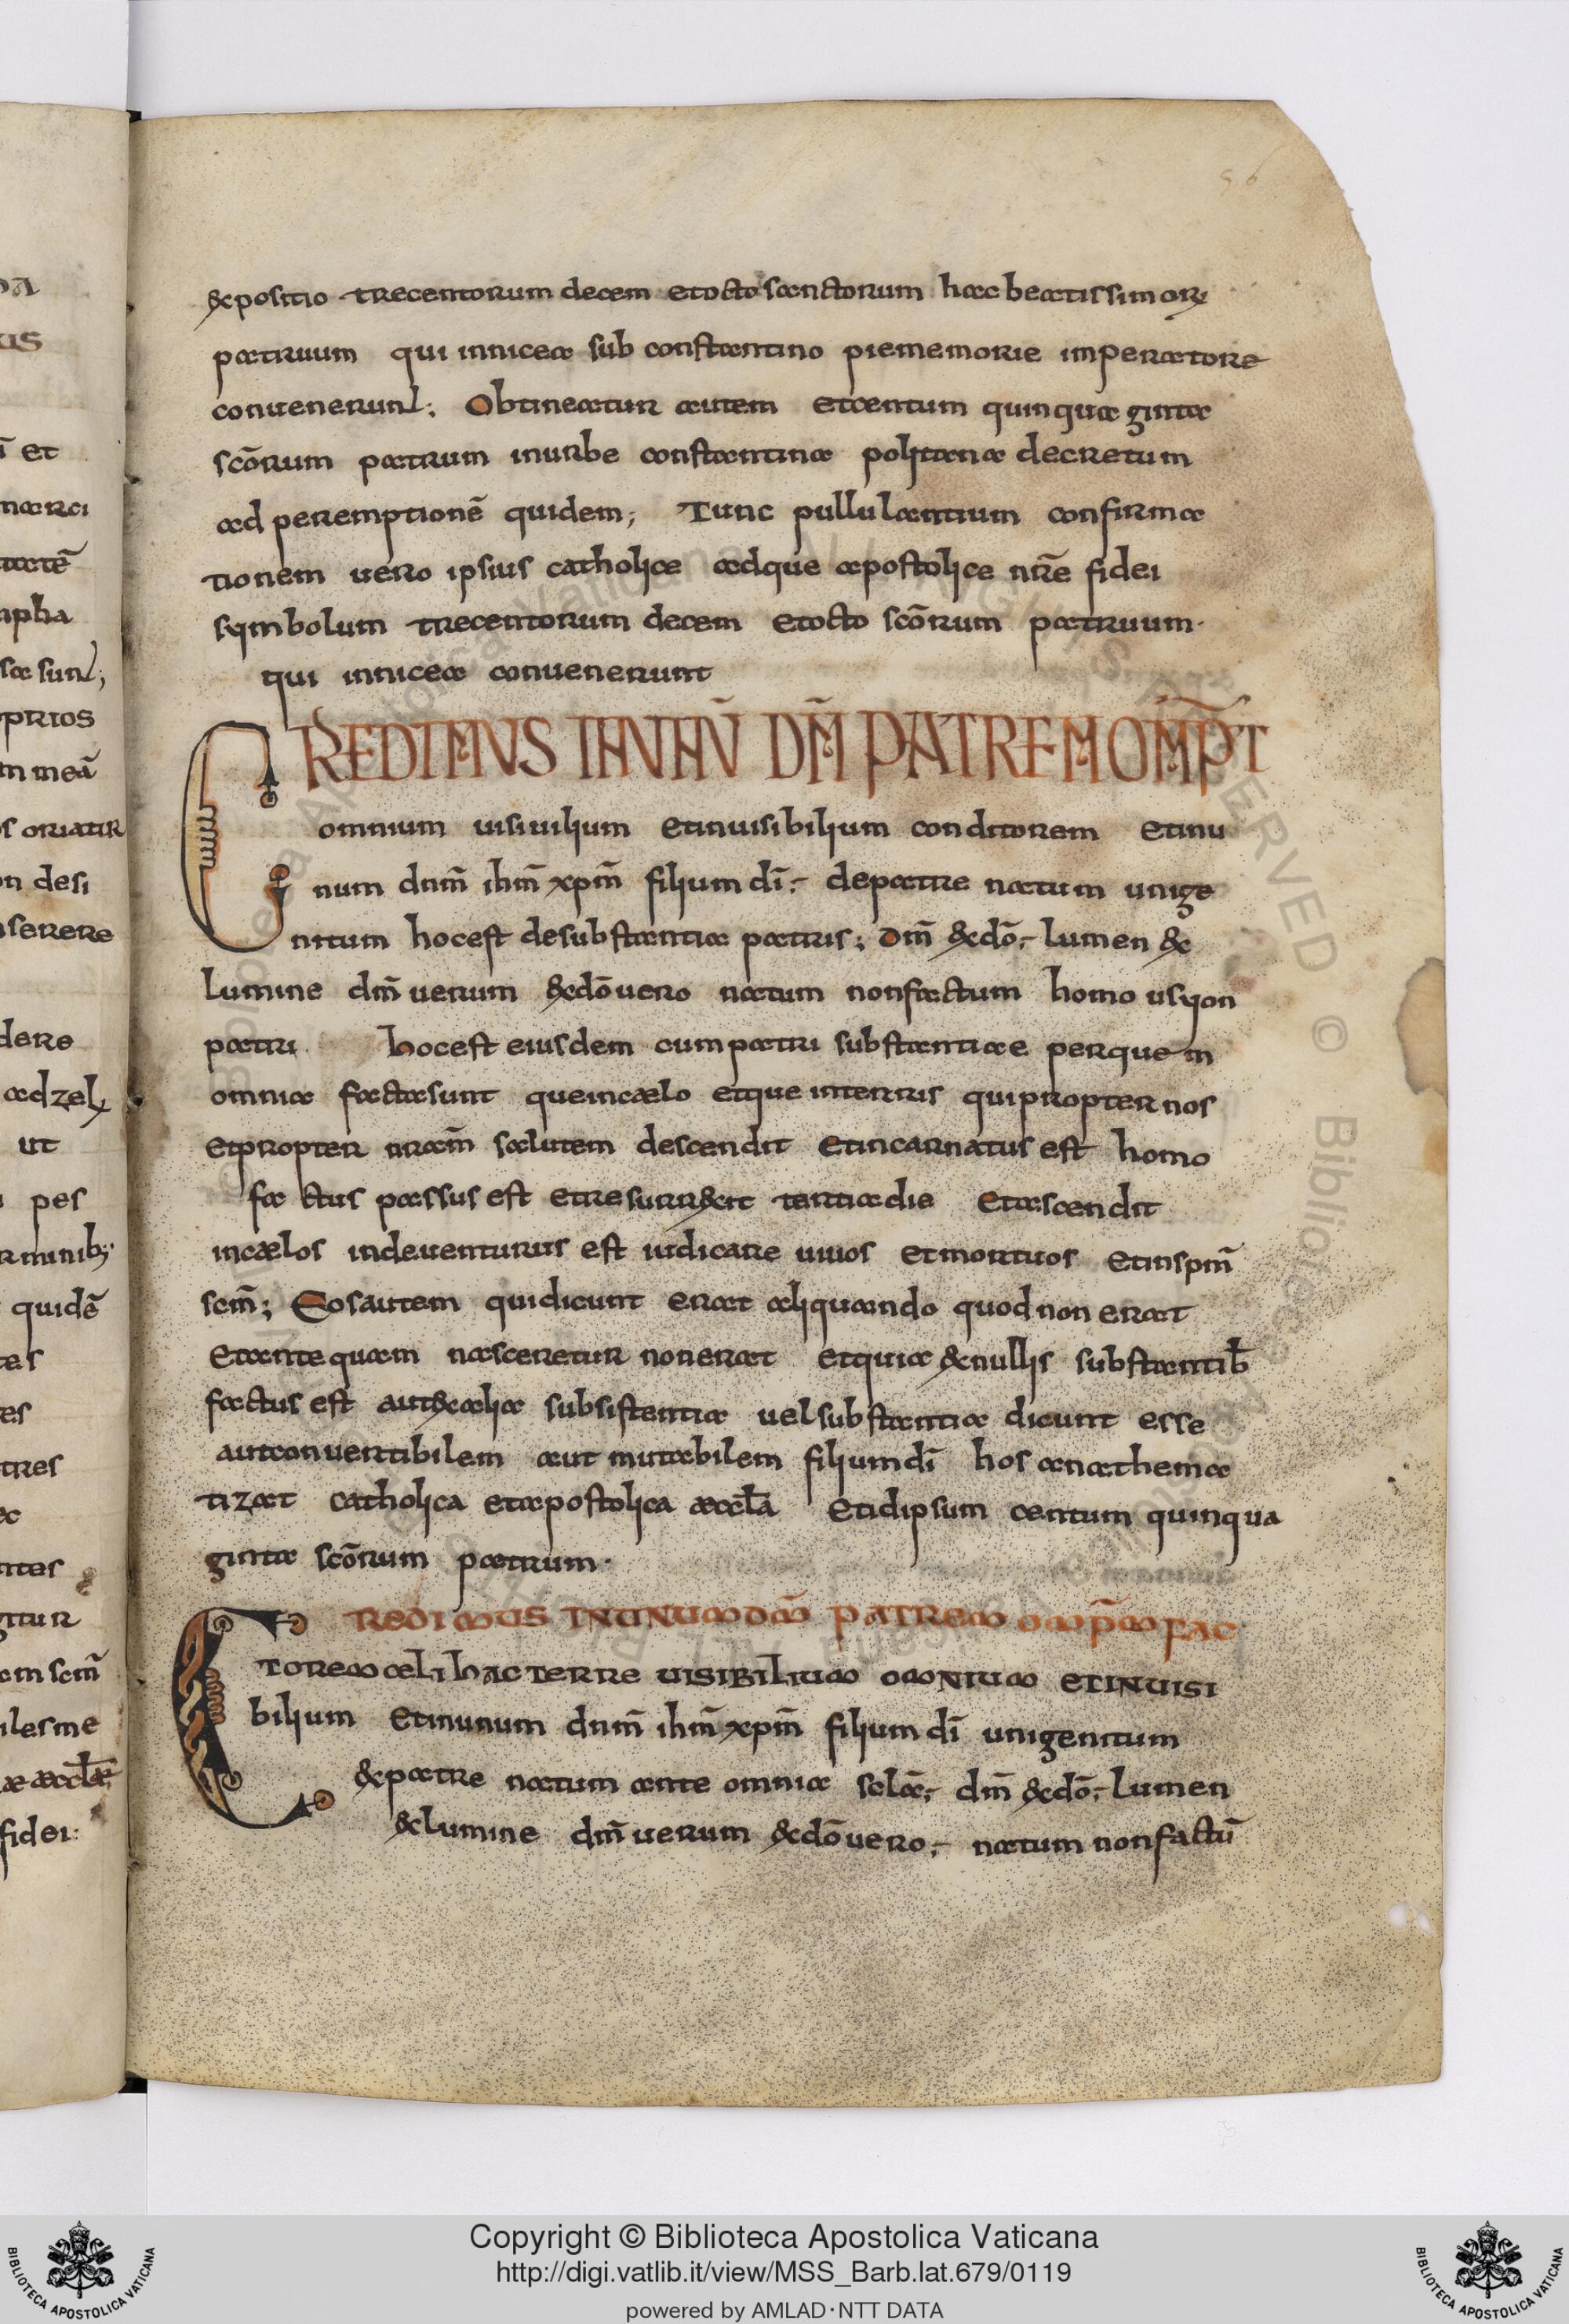 56
expositio trecentorum decem et octo sanctorum hac beatissimoꝝ
patruum qui in nicea sub constantino pie memorie imperatore
convenerunt; Obtineatur autem et centum quinquaginta
scōrum patrum in urbe constantina politana decretum
ad peremptionē quidem; Tunc pullulantium confirma
tionem vero ipsius catholice adque apostolice nr̄e fidei
symbolum trecentorum decem et octo scōrum patruum·
qui in nicea convenerunt
CREDIMUS IN UNŪ DM̄ PATREM OMP̄T
omnium visivilium et invisibilium conditorem et in u
num dnm̄ ihm̄ xpm̄ filium dī; de patre natum unige
nitum hoc est de substantia patris; dm̄ ex dō; lumen ex
lumine dm̄ verum ex dō vero natum non factum homo usyon
patri hoc est eiusdem cum patri substantiae per quem
omnia facta sunt que in cælo et que in terris qui propter nos
et propter nram̄ salutem descendit et incarnatus est homo
factus passus est et resurrexit tertia die et ascendit
in cælos inde venturus est iudicare vivos et mortuos et in spm̄
scm̄; Eos autem qui dicunt erat aliquando quod non erat
et ante quam nasceretur non erat et quia ex nullis substantib̄
factus est aut ex alia subsistentia vel substantia dicunt esse
aut convertibilem aut mutabilem filium dī hos anathema
tizat catholica et apostolica æccl̄a Et idipsum centum quinqua
ginta scōrum patrum·
CREDIMUS IN UNUM DM̄ PATREM OMP̄M FAC
TOREM cæli hac terre visibilium omnium et invisi
bilium Et in unum dnm̄ ihm̄ xpm̄ filium dī unigenitum
ex patre natum ante omnia sclā; dm̄ ex dō; lumen
ex lumine dm̄ verum ex dō vero; natum non factū
Copyright © Biblioteca Apostolica Vaticana
http://digi.vatlib.it/view/MSS_Barb.lat.679/0119
powered by AMLAD·NTT DATA
BIBLIOTECA APOSTOLICA VATICANA
BIBLIOTECA APOSTOLICA VATICANA